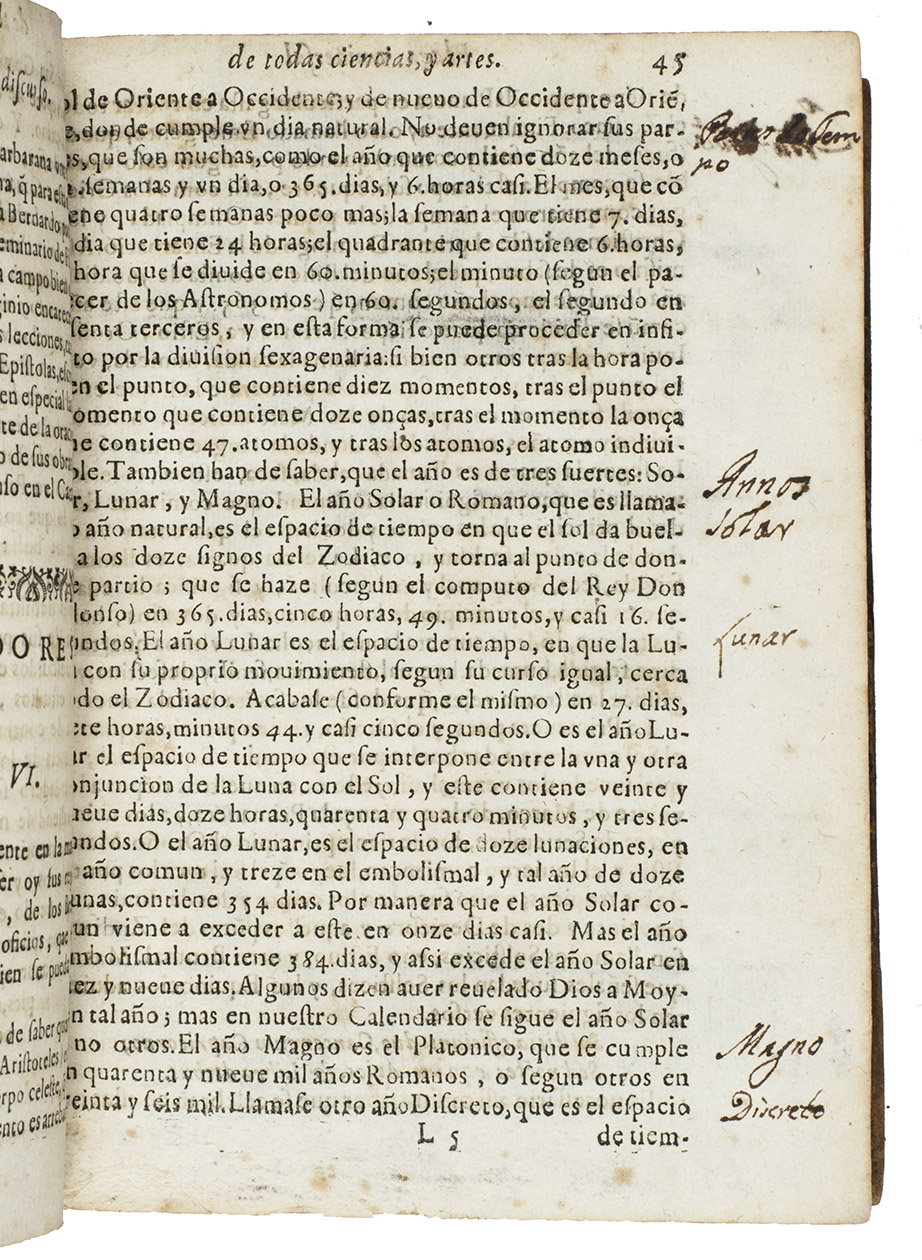 de todas ciencias, y artes. 45
ol de Oriente a Occidente; y de nueuo de Occidente a Oriẽ,
e, donde cumple vn dia natural. No deuen ignorar sus par-
es, que son muchas, como el año que contiene doze meses, o
semanas y vn dia, o 365. dias, y 6. horas casi. El mes, que cõ
ene quatro semanas poco mas; la semana que tiene 7. dias,
dia que tiene 24 horas; el quadrante que contiene 6. horas,
hora que se diuide en 60. minutos; el minuto (segun el pa-
cer de los Astronomos) en 60. segundos, el segundo en
senta terceros, y en esta forma se puede proceder en infi-
to por la diuision sexagenaria: si bien otros tras la hora po-
en el punto, que contiene diez momentos, tras el punto el
omento que contiene doze onças, tras el momento la onça
ue contiene 47. atomos, y tras los atomos, el atomo indiui-
ble. Tambien han de saber, que el año es de tres suertes: So-
r, Lunar, y Magno. El año Solar o Romano, que es llama-
o año natural, es el espacio de tiempo en que el sol da buel-
a los doze signos del Zodiaco, y torna al punto de don-
e partio; que se haze (segun el computo del Rey Don
lonso) en 365. dias, cinco horas, 49. minutos, y casi 16. se-
undos. El año Lunar es el espacio de tiempo, en que la Lu-
con su proprio mouimiento, segun su curso igual, cerca
do el Zodiaco. Acabase (conforme el mismo) en 27. dias,
ete horas, minutos 44. y casi cinco segundos. O es el año Lu-
ar el espacio de tiempo que se interpone entre la vna y otra
onjuncion de la Luna con el Sol, y este contiene veinte y
ueue dias, doze horas, quarenta y quatro minutos, y tres se-
undos. O el año Lunar, es el espacio de doze lunaciones, en
año comun, y treze en el embolismal, y tal año de doze
unas, contiene 354 dias. Por manera que el año Solar co-
un viene a exceder a este en onze dias casi. Mas el año
mbolismal contiene 384. dias, y assi excede el año Solar en
iez y nueue dias. Algunos dizen auer reuelado Dios a Moy-
n tal año; mas en nuestro Calendario se sigue el año Solar
no otros. El año Magno es el Platonico, que se cumple
n quarenta y nueue mil años Romanos, o segun otros en
reinta y seis mil. Llamase otro año Discreto, que es el espacio
L 5 de tiem-
Tem
po
Annos
solar
Lunar
Magno
Discreto
discurso.
arbarana
a Bernardo
eminario de
a campo bien
lecciones,
Epistolas,
en especial
te de la
o de sus
so en el
O RE
VI.
ente en la
er oy sus
, de los
oficios, que
ien se
de saber
Aristoteles
rpo celeste,
ento es